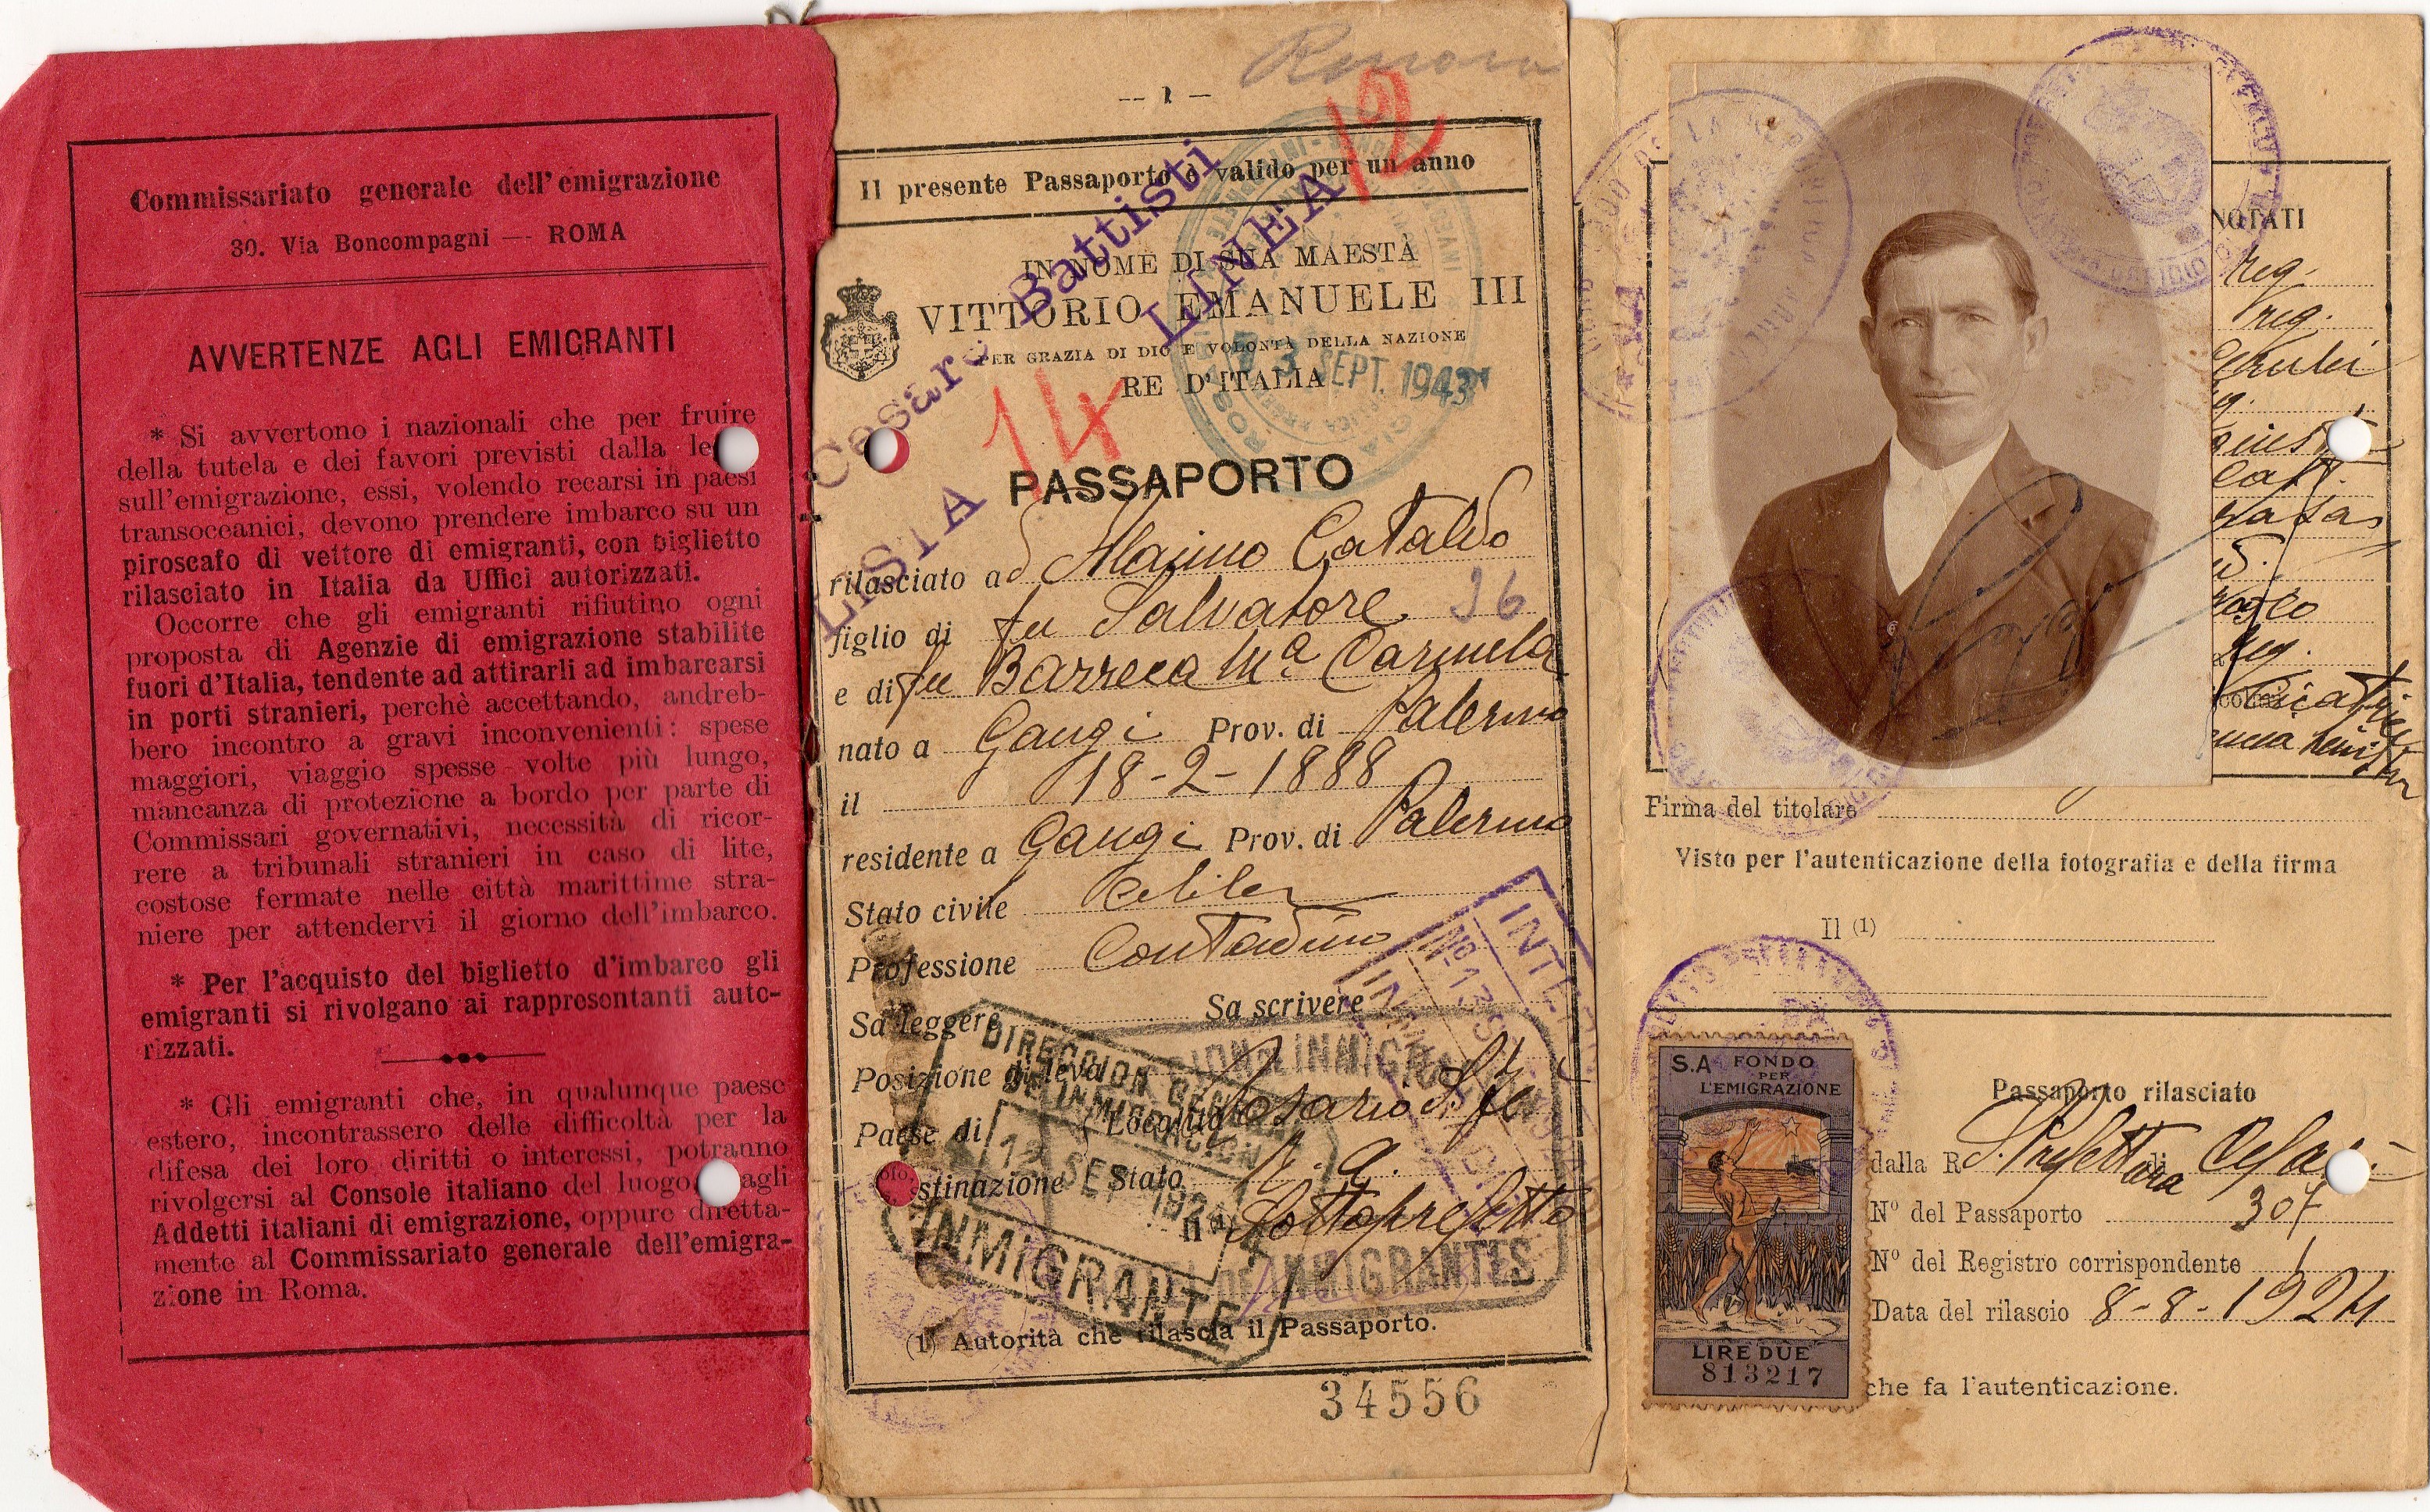 Commissariato generale dell'emigrazione
30. Via Boncompagni — ROMA
AVVERTENZE AGLI EMIGRANTI
* Si avvertono i nazionali che per fruire
della tutela e dei favori previsti dalla
sull'emigrazione, essi, volendo recarsi in paesi
transoceanici, devono prendere imbarco su un
piroscafo di vettore di emigranti, con biglietto
rilasciato in Italia da Uffici autorizzati.
Occorre che gli emigranti rifiutino ogni
proposta di Agenzie di emigrazione stabilite
fuori d'Italia, tendente ad attirarli ad imbarcarsi
in porti stranieri, perchè accettando, andreb-
bero incontro a gravi inconvenienti: spese
maggiori, viaggio spesse volte più lungo,
mancanza di protezione a bordo per parte di
Commissari governativi, necessità di ricor-
rere a tribunali stranieri in caso di lite,
costose fermate nelle città marittime stra-
niere per attendervi il giorno dell'imbarco.
* Per l'acquisto del biglietto d'imbarco gli
emigranti si rivolgano ai rappresentanti auto-
rizzati.
* Gli emigranti che, in qualunque paese
estero, incontrassero delle difficoltà per la
difesa dei loro diritti o interessi, potranno
rivolgersi al Console italiano del luogo, agli
Addetti italiani di emigrazione, oppure diretta-
mente al Commissariato generale dell'emigra-
zione in Roma.
— 1 —
12
Il presente Passaporto è valido per un anno
IN NOME DI SUA MAESTÀ
VITTORIO EMANUELE III
PER GRAZIA DI DIO E VOLONTÀ DELLA NAZIONE
RE D'ITALIA
Cesare Battisti
LISTA LINEA
3 SEPT. 1943
14
PASSAPORTO
rilasciato ad Alaimo Cataldo
figlio di fu Salvatore 36
e di fu Barreca Ma Carmela
nato a Gangi Prov. di Palermo
il 18-2-1888
residente a Gangi Prov. di Palermo
Stato civile Celibe
Professione Contadino
Sa leggere Sa scrivere
Posizione di leva
Paese di Località Rosario S. Fè
stinazione Stato R. A.
Il (1) Sottoprefetto
DIRECCION GENERAL
DE INMIGRACION
SEP 1924
INMIGRANTE
DE INMIGRANTES
(1) Autorità che rilascia il Passaporto.
34556
NOTATI
reg.
reg.
Firma del titolare
Visto per l'autenticazione della fotografia e della firma
Il (1)
S.A. FONDO
PER
L'EMIGRAZIONE
LIRE DUE
813217
Passaporto rilasciato
dalla R. S. Prefettura di Cefalù
N° del Passaporto 307
N° del Registro corrispondente 1
Data del rilascio 8-8-1924
che fa l'autenticazione.